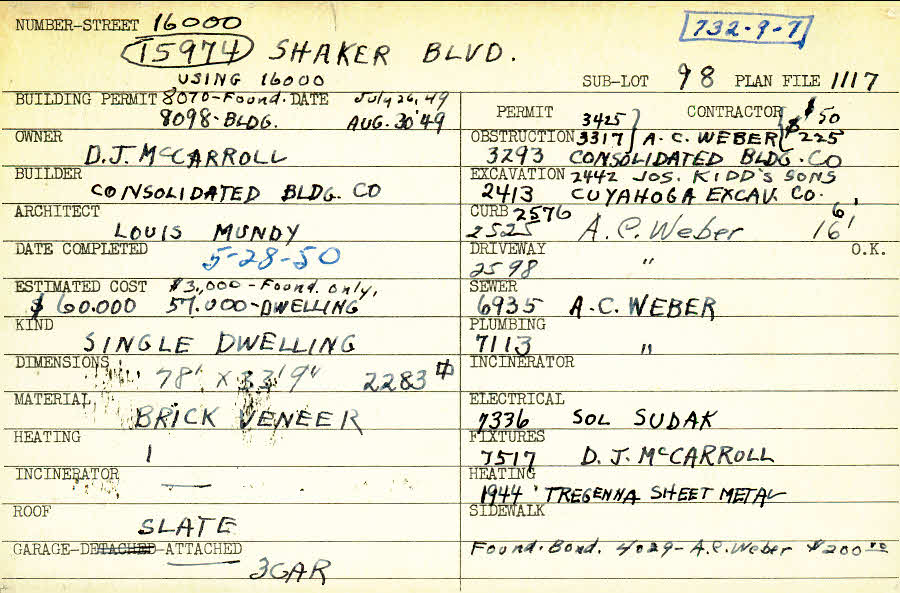 NUMBER-STREET 16000
732-9-7
15974 SHAKER BLVD.
USING 16000
SUB-LOT 98 PLAN FILE 1117
BUILDING PERMIT 8070-Found. DATE July 26, 49
8098-BLDG. AUG. 30 '49
OWNER
D.J. McCARROLL
BUILDER
CONSOLIDATED BLDG. CO
ARCHITECT
LOUIS MUNDY
DATE COMPLETED
5-28-50
ESTIMATED COST $3,000-Found. only,
$60.000 57.000-DWELLING
KIND
SINGLE DWELLING
DIMENSIONS
78' x 33'9" 2283
MATERIAL
BRICK VENEER
HEATING
1
INCINERATOR
—
ROOF
SLATE
GARAGE-DETACHED-ATTACHED
3 CAR
PERMIT CONTRACTOR $50
3425
OBSTRUCTION 3317 } A.C. WEBER { $225
3293 CONSOLIDATED BLDG. CO
EXCAVATION 2442 JOS. KIDD'S SONS
2413 CUYAHOGA EXCAV. CO.
CURB 2576 6'
2525 A.C. Weber 16'
DRIVEWAY O.K.
2598 "
SEWER
6935 A.C. WEBER
PLUMBING
7113 "
INCINERATOR
ELECTRICAL
7336 SOL SUDAK
FIXTURES
7517 D.J. McCARROLL
HEATING
1944 TREGENNA SHEET METAL
SIDEWALK
Found. Bond. 4029-A.C. Weber $200.00